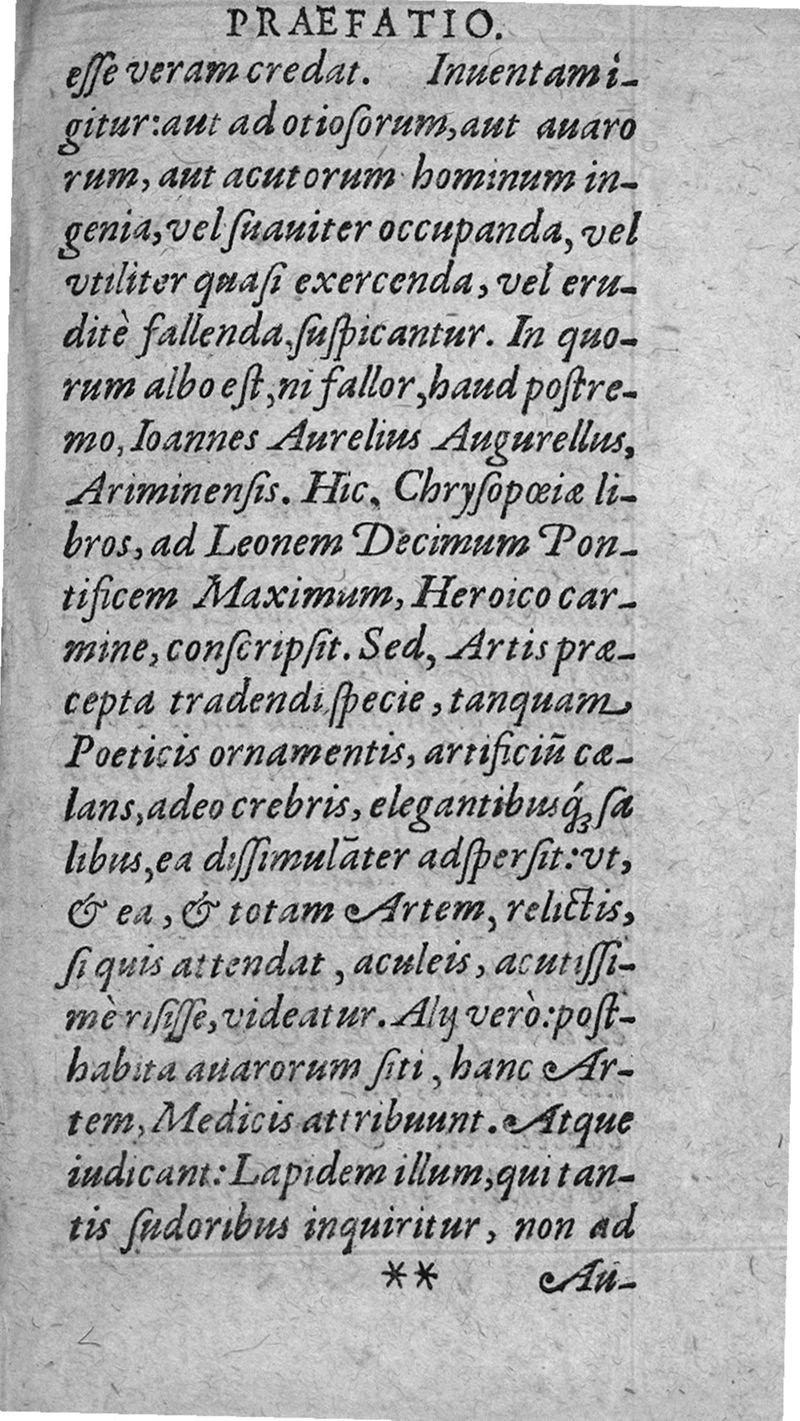 PRAEFATIO.
esſe veram credat. Inuentam i-
gitur: aut ad otioſorum, aut auaro
rum, aut acutorum hominum in-
genia, vel ſuauiter occupanda, vel
vtiliter quaſi exercenda, vel eru-
ditè fallenda, ſuſpicantur. In quo-
rum albo eſt, ni fallor, haud poſtre-
mo, Ioannes Aurelius Augurellus,
Ariminenſis. Hic, Chryſopœiæ li-
bros, ad Leonem Decimum Pon-
tificem Maximum, Heroico car-
mine, conſcripſit. Sed, Artis præ-
cepta tradendi ſpecie, tanquam
Poeticis ornamentis, artificiū cæ-
lans, adeo crebris, elegantibusq́ꝫ ſa
libus, ea diſſimulāter adſperſit: vt,
& ea, & totam Artem, relictis,
ſi quis attendat, aculeis, acutiſſi-
mè riſiſſe, videatur. Alij verò: poſt-
habita auarorum ſiti, hanc Ar-
tem, Medicis attribuunt. Atque
iudicant: Lapidem illum, qui tan-
tis ſudoribus inquiritur, non ad
** Au-